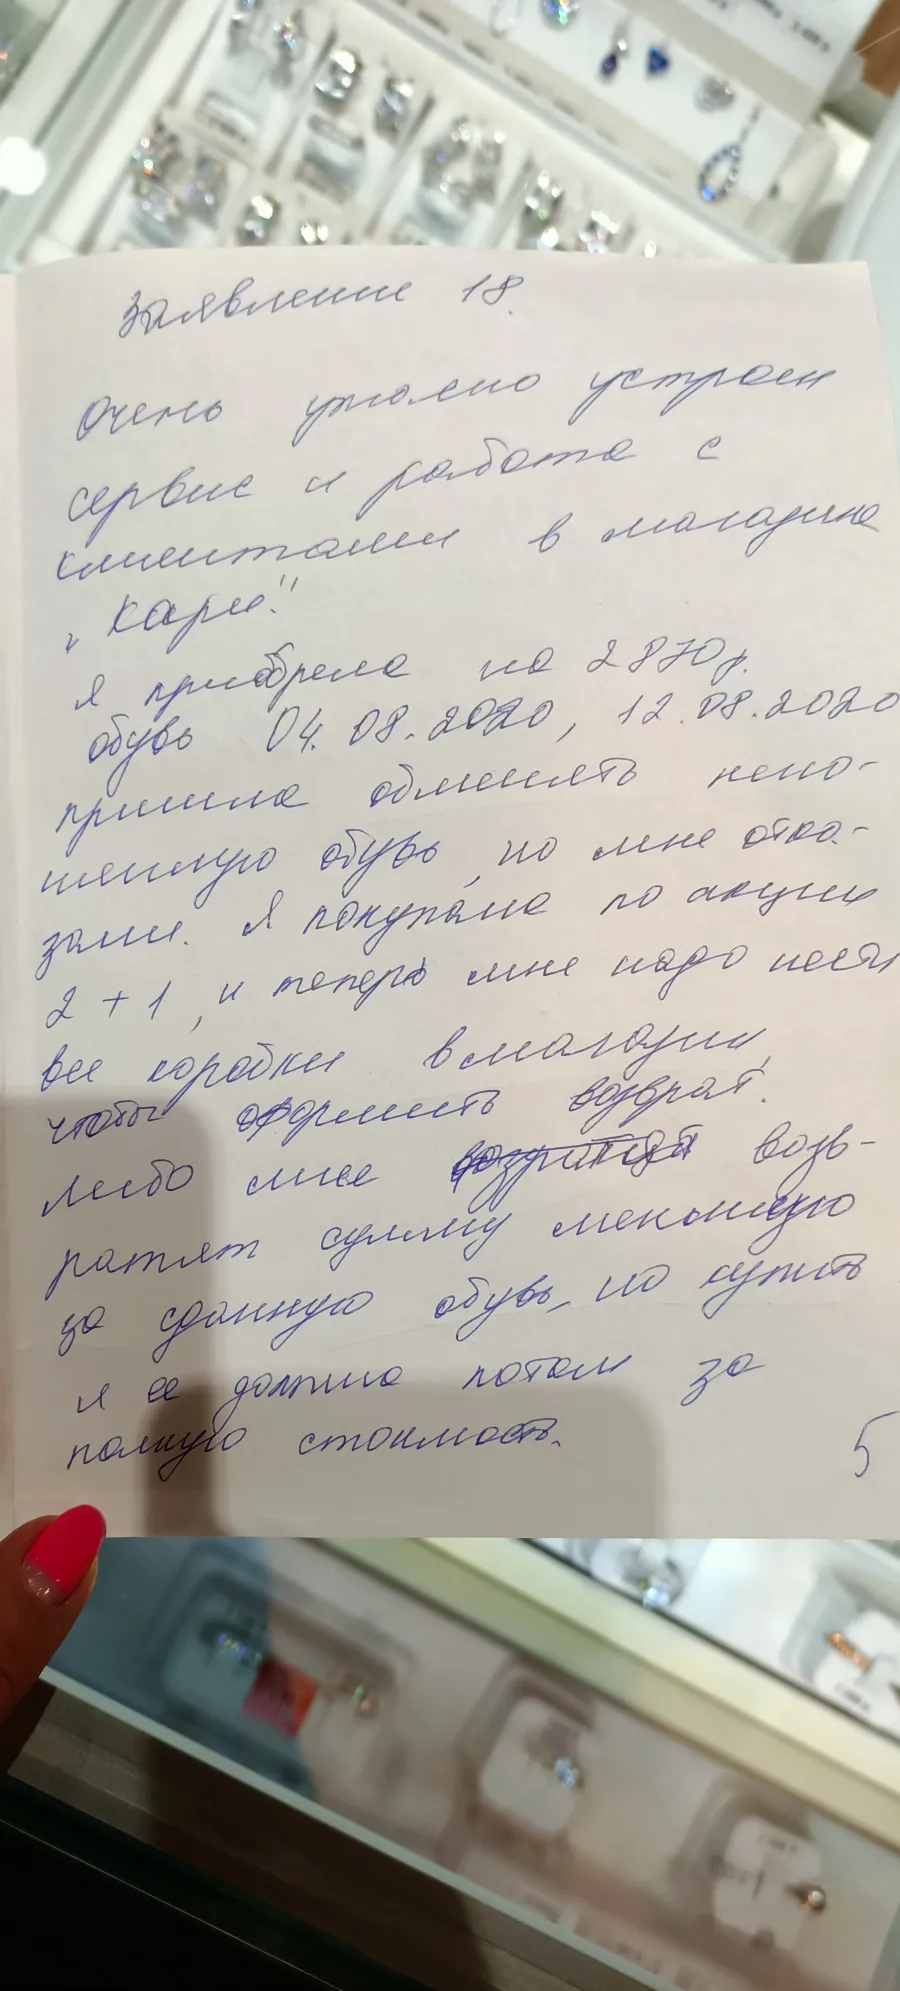 Заявление 18.
Очень ужасно устроен
сервис и работа с
клиентами в магазине
„Кари".
Я приобрела на 2870р.
обувь 04.08.2020, 12.08.2020
пришла обменять нено-
шенную обувь, но мне отка-
зали. Я покупала по акции
2 + 1, и теперь мне надо нести
все коробки в магазин,
чтобы оформить возврат.
Либо мне возв-
ратят сумму меньшую
за сданную обувь, но купить
я ее должна потом за
полную стоимость.
5